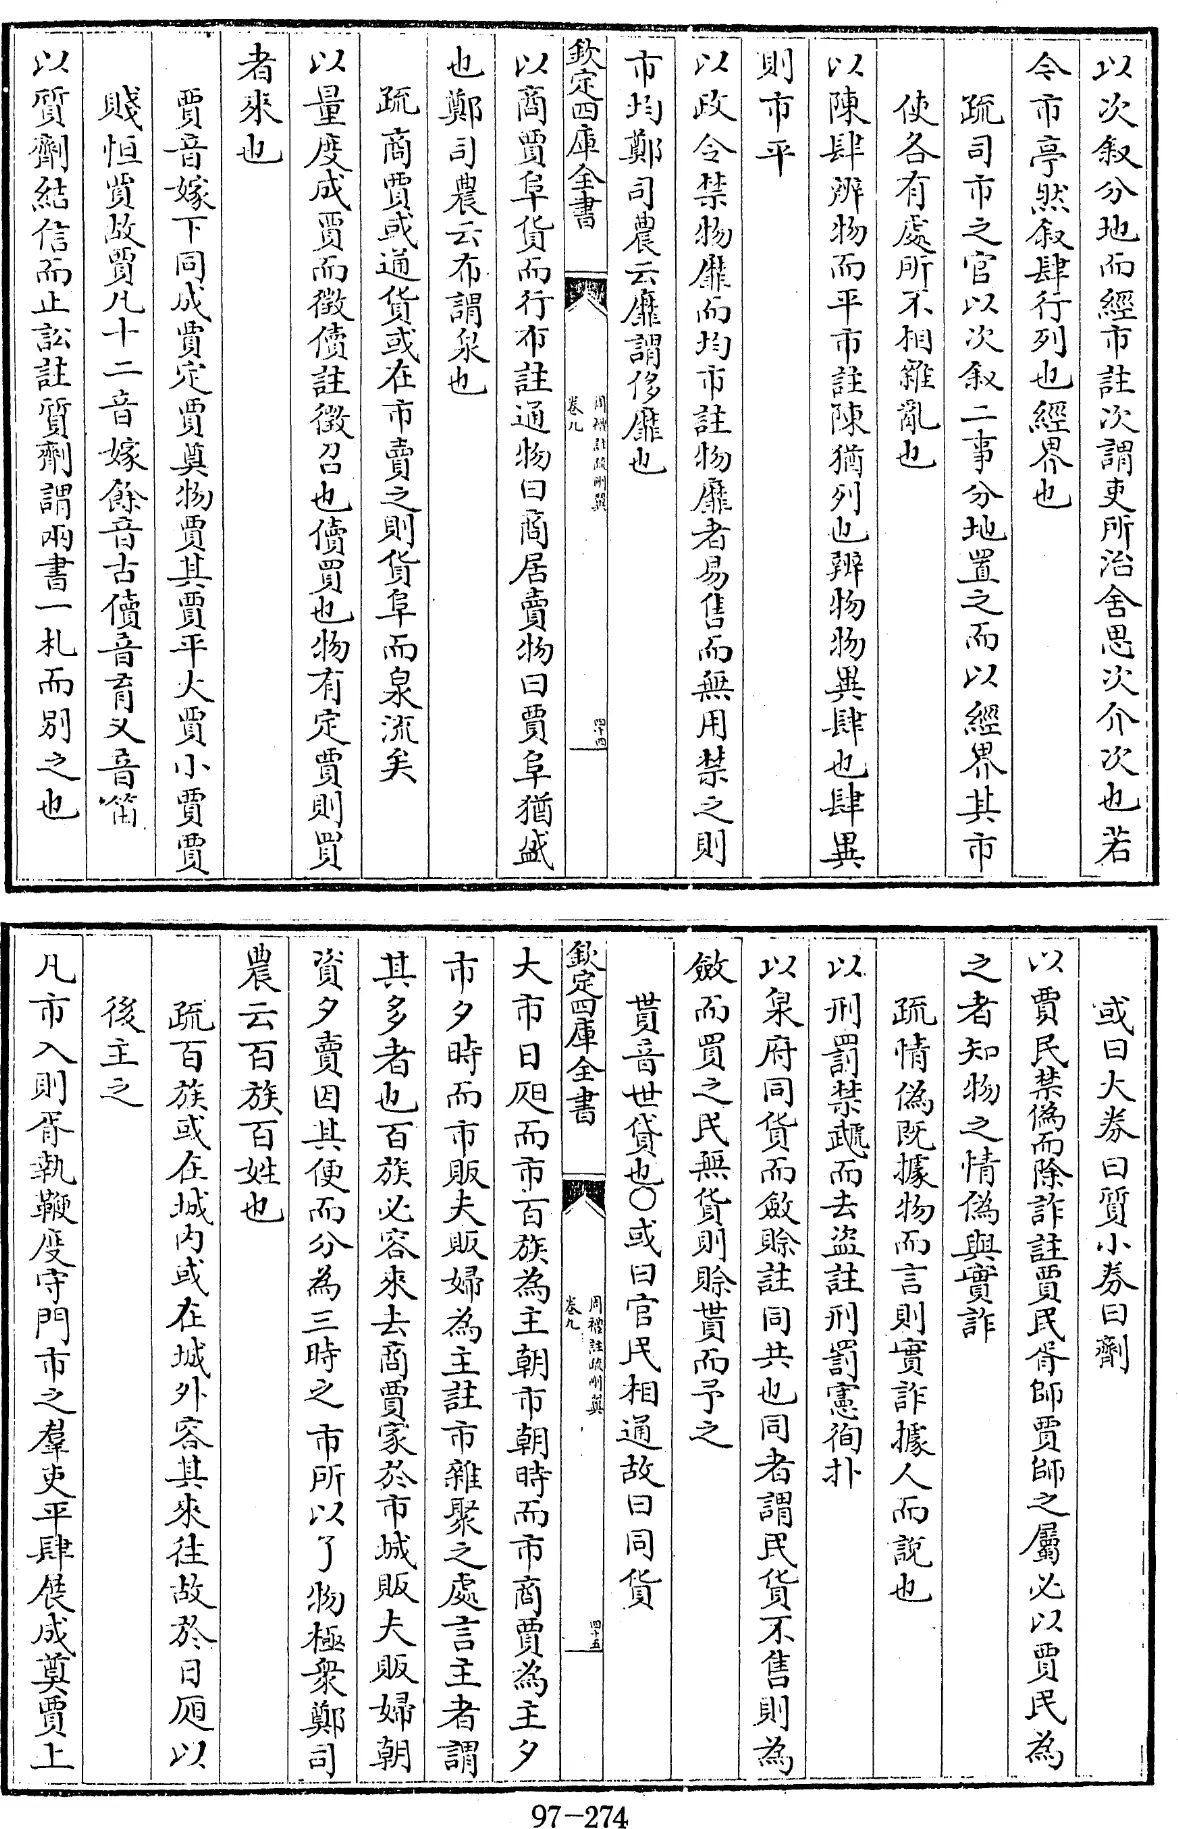 以次叙分地而經市註次謂吏所治舍思次介次也若
令市亭然叙肆行列也經界也
疏司市之官以次叙二事分地置之而以經界其市
使各有處所不相雜亂也
以陳肆辨物而平市註陳猶列也辨物物異肆也肆異
則市平
以政令禁物靡而均市註物靡者易售而無用禁之則
市均鄭司農云靡謂侈靡也
欽定四庫全書
周禮註疏刪翼
卷九
四十四
以商賈阜貨而行布註通物曰商居賣物曰賈阜猶盛
也鄭司農云布謂泉也
疏商賈或通貨或在市賣之則貨阜而泉流矣
以量度成賈而徵儥註徵召也儥買也物有定賈則買
者來也
賈音嫁下同成賈定賈奠物賈其賈平大賈小賈賈
賤恒賈故賈凡十二音嫁餘音古儥音育又音笛
以質劑結信而止訟註質劑謂兩書一札而别之也
或曰大券曰質小券曰劑
以賈民禁偽而除詐註賈民胥師賈師之屬必以賈民為
之者知物之情偽與實詐
疏情偽既據物而言則實詐據人而說也
以刑罰禁虣而去盜註刑罰憲徇扑
以泉府同貨而斂賖註同共也同者謂民貨不售則為
斂而買之民無貨則賖貰而予之
貰音世貸也○或曰官民相通故曰同貨
欽定四庫全書
周禮註疏刪翼
卷九
四十五
大市日昃而市百族為主朝市朝時而市商賈為主夕
市夕時而市販夫販婦為主註市雜聚之處言主者謂
其多者也百族必容來去商賈家於市城販夫販婦朝
資夕賣因其便而分為三時之市所以了物極衆鄭司
農云百族百姓也
疏百族或在城内或在城外容其來往故於日昃以
後主之
凡市入則胥執鞭度守門市之羣吏平肆展成奠賈上
97-274